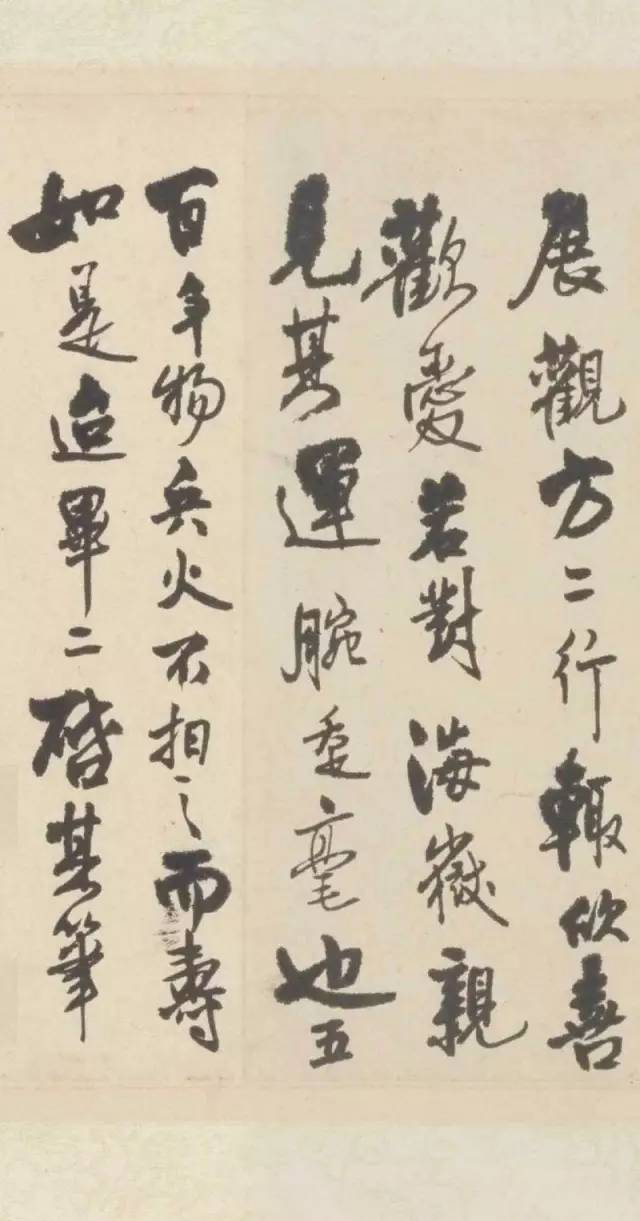 展觀方二行輒欣喜
歡愛若對海嶽親
見其運腕垂毫也五
百年物兵火不相之而壽
如是迨畢二啓其筆